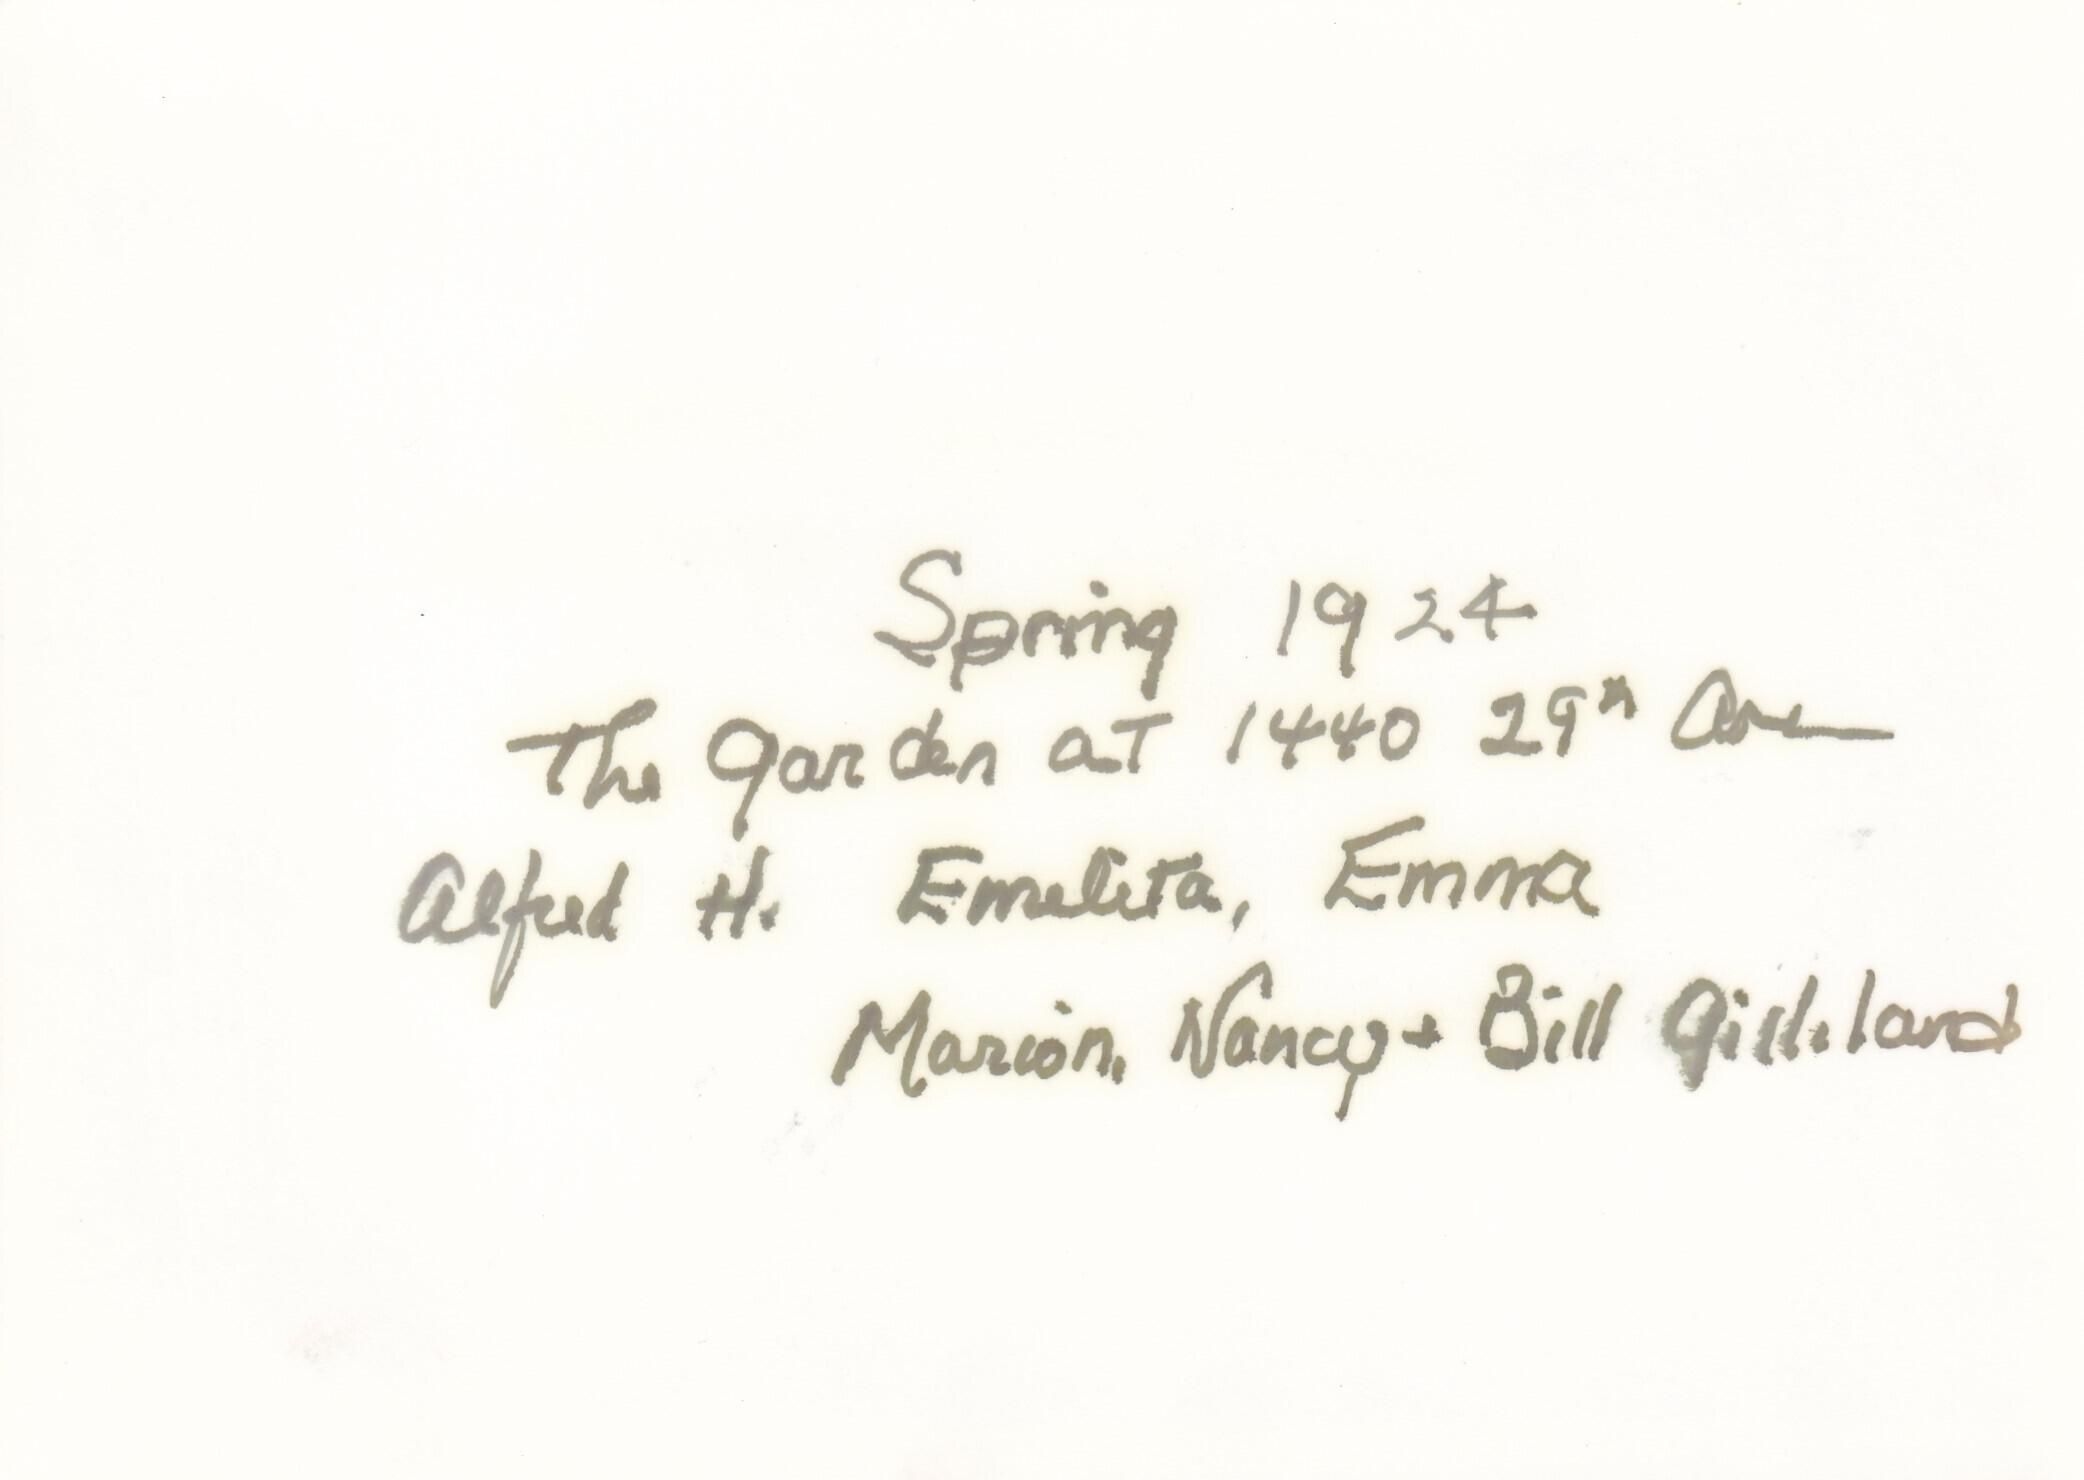 Spring 1924
The Garden at 1440 29th Ave
Alfred H. Emelita, Emma
Marion, Nancy + Bill Gilliland